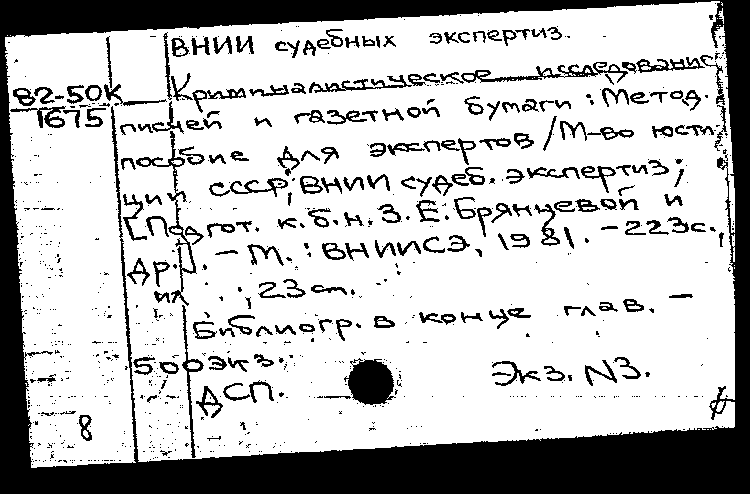 ВНИИ судебных экспертиз.
82-50К Криминалистическое исследование
1675 писчей и газетной бумаги : Метод.
пособие для экспертов / М-во юсти-
ции СССР, ВНИИ судеб. экспертиз;
[Подгот. к.б.н. З.Е. Брянцевой и
др.]. - М. : ВНИИСЭ, 1981. - 223с.,
ил. ; 23 cm.
Библиогр. в конце глав. -
500экз.
ДСП. Экз. N3.
8